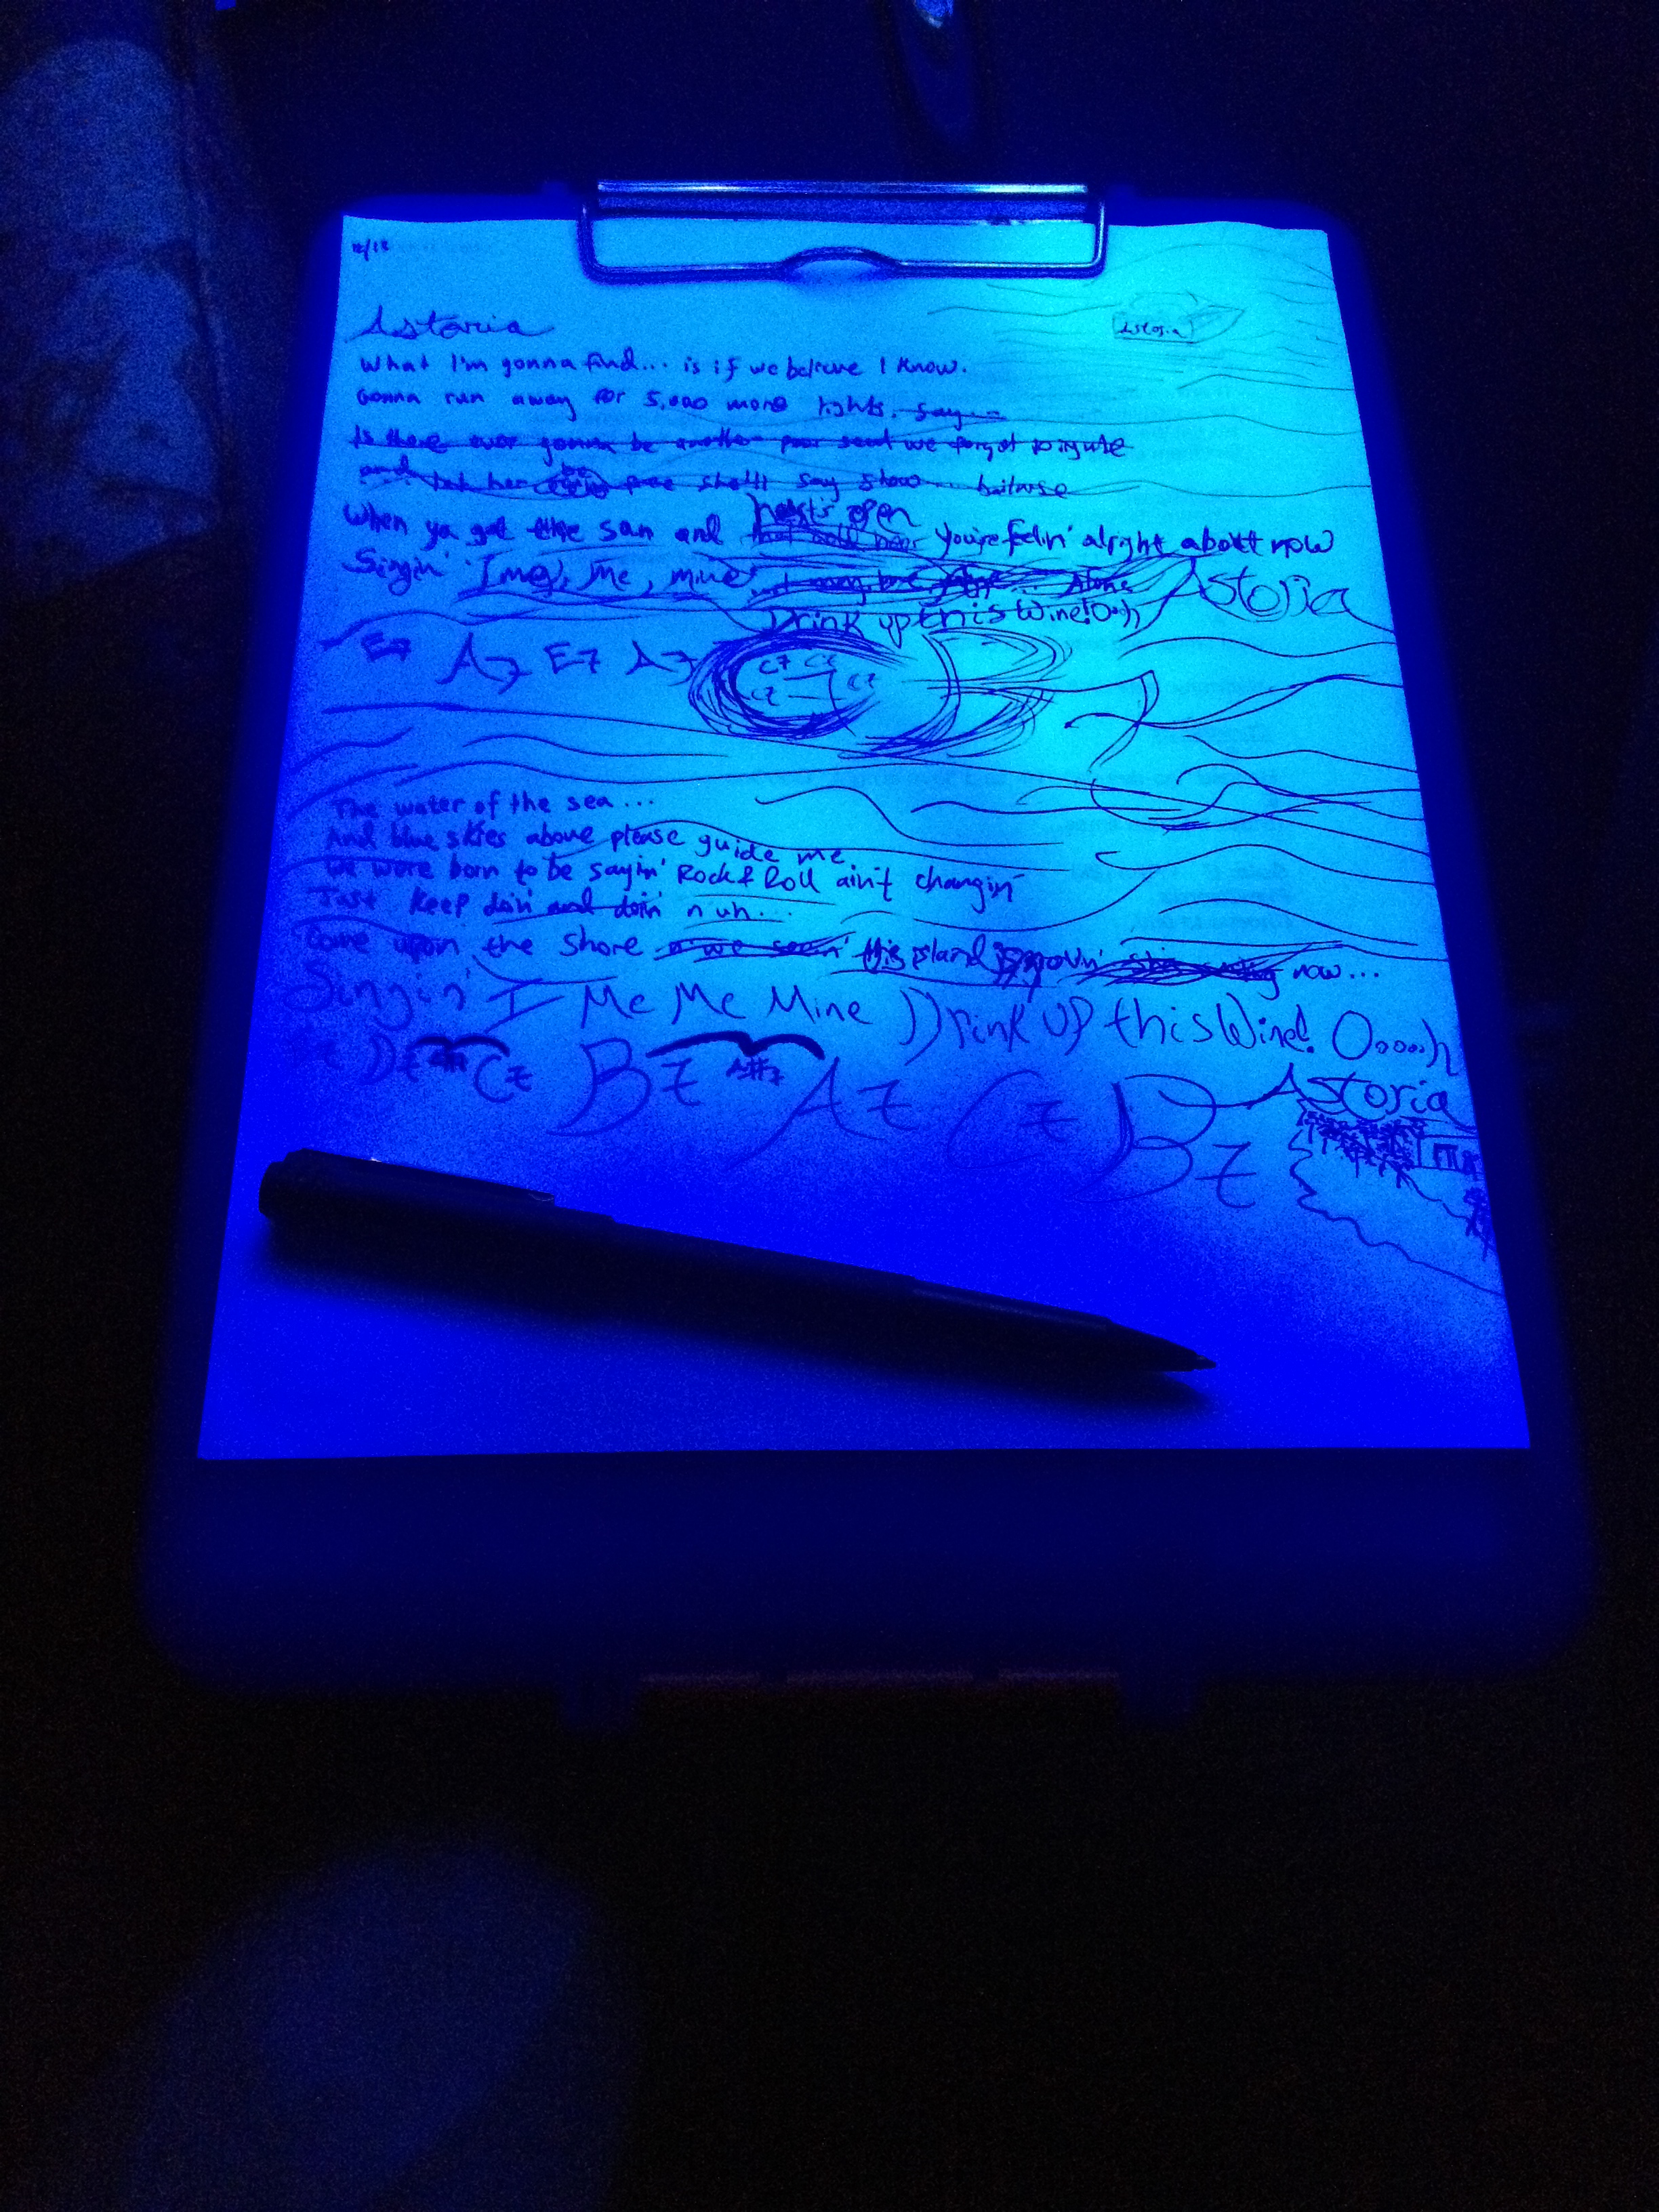 12/18
Astoria
Astoria
What I'm gonna find... is if we believe I know.
Gonna run away for 5,000 more lights. say...
Is there ever gonna be another poor seed we forgot to ignite
and let her be free shell say show...
When ya got the sun and hearts open you're feelin' alright about now
Singin' I me, Me, mine
Drink up this Wine! Oooh Astoria
E7 A7 E7 A7 C7 C7 C7 C7 B7
The water of the sea...
And blue skies above please guide me
We were born to be sayin' Rock & Roll ain't changin'
Just keep doin' and doin' n uh...
Come upon the shore n we seein' this island is movin' now...
Singin' I Me Me Mine Drink up this Wine! Ooooh
Astoria
D7 C7 B7 A#7 A7 C7 B7